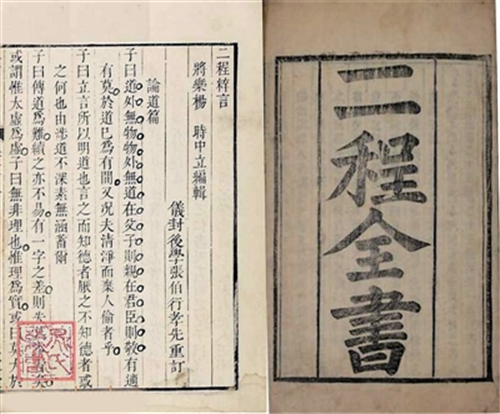 二程全書
二程粹言
將樂楊 時中立編輯
儀封後學張伯行孝先重訂
論道篇
子曰道外無物物外無道在父子則親在君臣則敬有適
有莫於道已為有間又况夫清淨而棄人倫者乎
子曰立言所以明道也言之而知德者厭之不知德者或
之何也由涉道不深素無涵蓄爾
子曰傳道為難續之亦不易有一字之差則失其本旨矣
或謂惟太虛為虛子曰無非理也惟理為實或曰莫大於